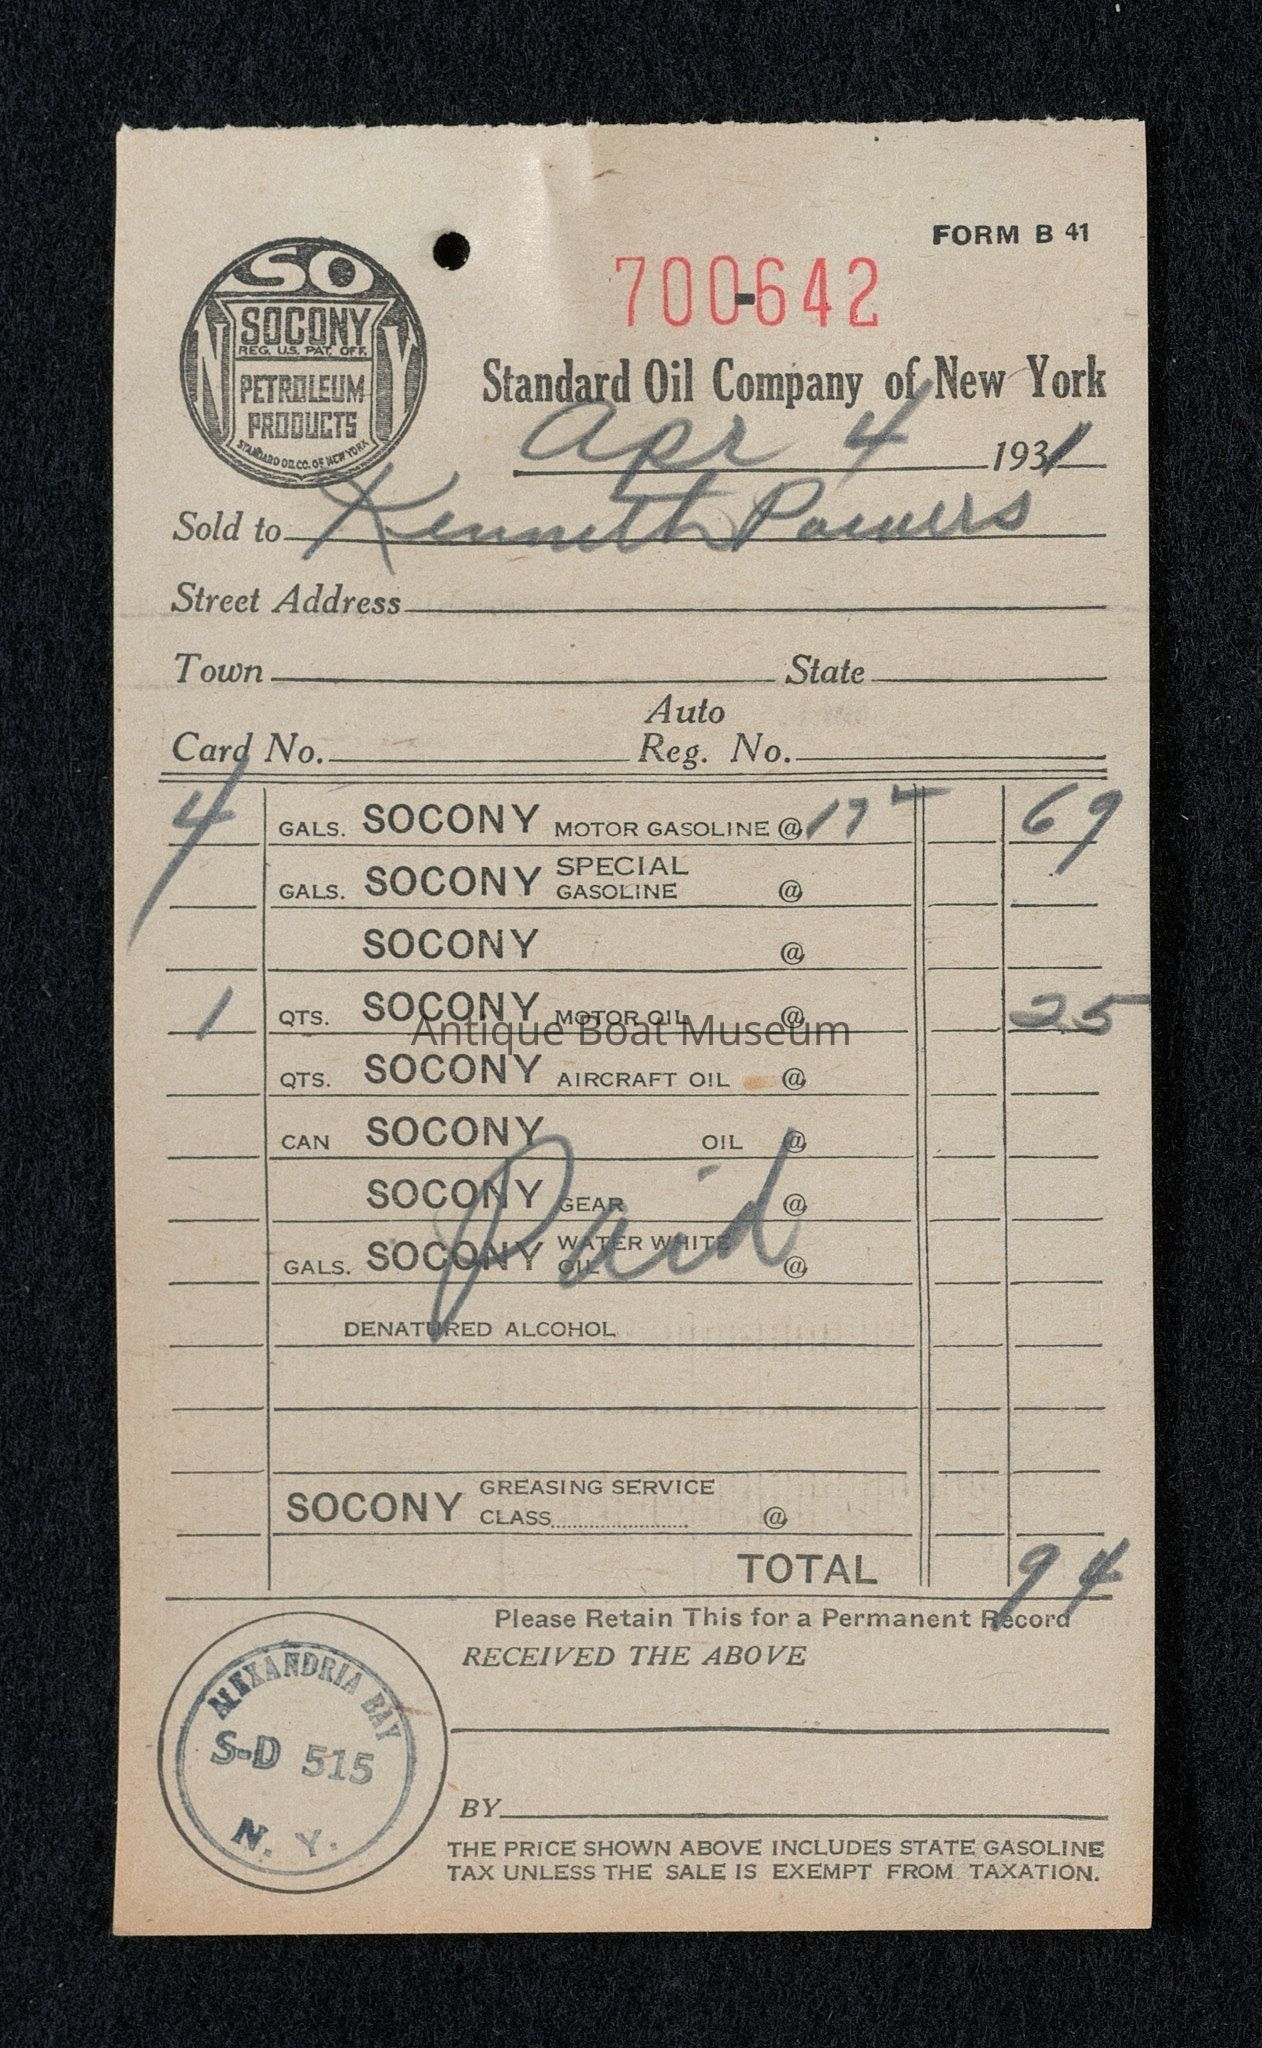 FORM B 41
SO
N Y
SOCONY
REG. U.S. PAT. OFF.
PETROLEUM
PRODUCTS
STANDARD OIL CO. OF NEW YORK
700-642
Standard Oil Company of New York
Apr 4 1931
Sold to Kenneth Powers
Street Address
Town State
Auto
Card No. Reg. No.
4 GALS. SOCONY MOTOR GASOLINE @ 17 69
GALS. SOCONY SPECIAL GASOLINE @
SOCONY @
1 QTS. SOCONY MOTOR OIL @ 25
Antique Boat Museum
QTS. SOCONY AIRCRAFT OIL @
CAN SOCONY OIL @
Paid
SOCONY GEAR @
GALS. SOCONY WATER WHITE OIL @
DENATURED ALCOHOL
SOCONY GREASING SERVICE
CLASS @
TOTAL 94
Please Retain This for a Permanent Record
RECEIVED THE ABOVE
ALEXANDRIA BAY
S-D 515
N. Y.
BY
THE PRICE SHOWN ABOVE INCLUDES STATE GASOLINE
TAX UNLESS THE SALE IS EXEMPT FROM TAXATION.